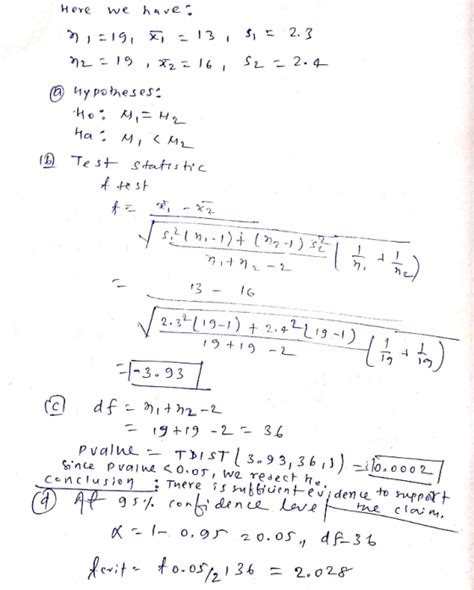 Here we have:
n1 = 19, x̄1 = 13, s1 = 2.3
n2 = 19, x̄2 = 16, s2 = 2.4
(a) Hypotheses:
H0: M1 = M2
Ha: M1 < M2
(b) Test statistic
t test
t = x̄1 - x̄2
√ s1²(n1-1) + (n2-1) s2² / n1+n2-2 (1/n1 + 1/n2)
= 13 - 16
√ 2.3²(19-1) + 2.4²(19-1) / 19+19-2 (1/19 + 1/19)
= -3.93
(c) df = n1+n2-2
= 19+19-2 = 36
Pvalue = TDIST(3.93,36,1) = 0.0002
Since pvalue <0.05, we reject H0.
conclusion: There is sufficient evidence to support
the claim.
(d) At 95% confidence level
α = 1-0.95 = 0.05, df=36
tcrit = t0.05/2,36 = 2.028